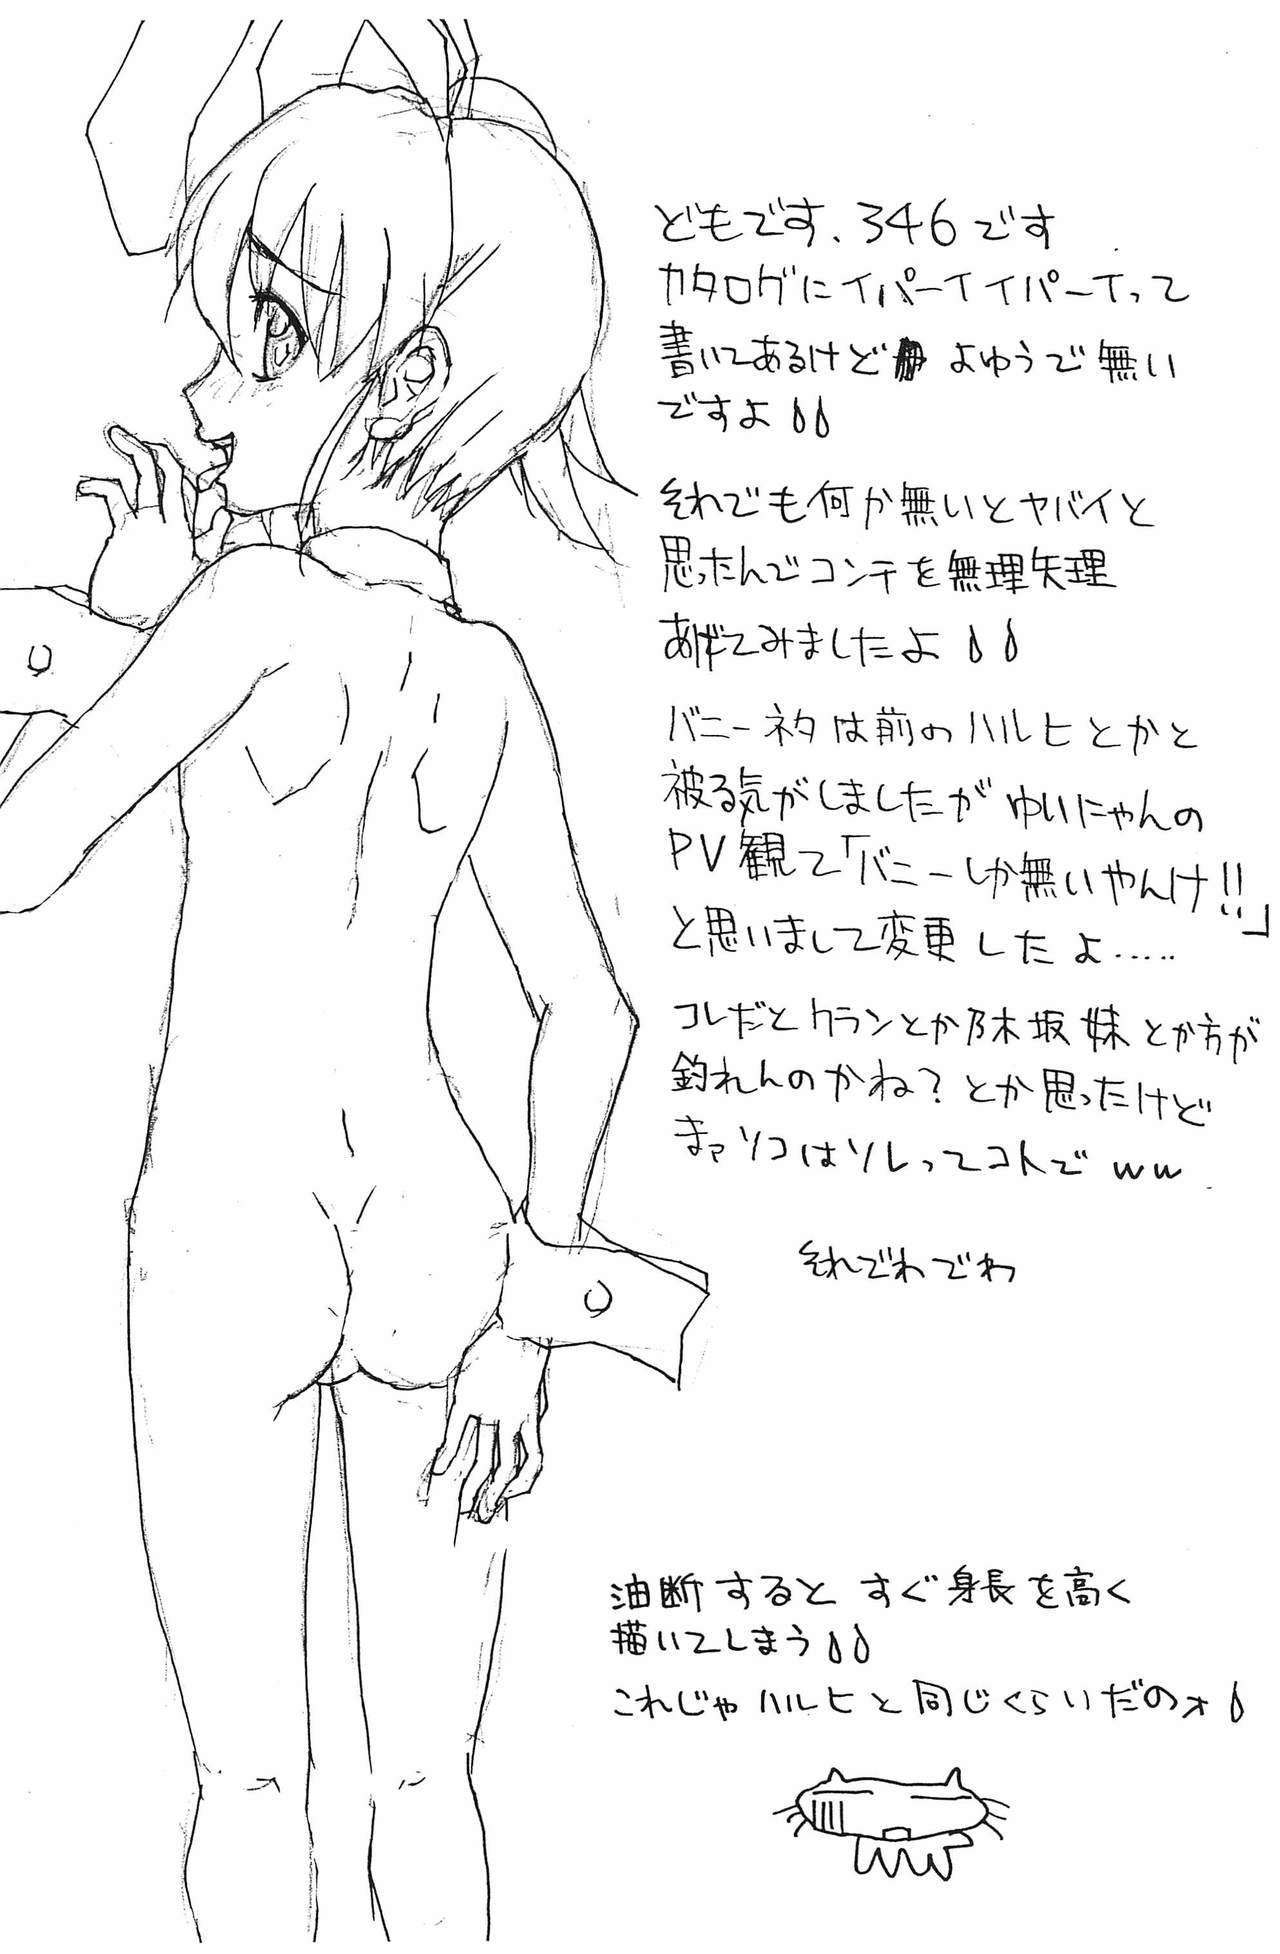 どもです、346です
カタログにイパーイイパーイって
書いてあるけど よゆうで無い
ですよ
それでも何か無いとヤバイと
思ったんでコンテを無理矢理
あげてみましたよ
バニーネタは前のハルヒとかと
被る気がしましたが ゆいにゃんの
PV観て「バニーしか無いやんけ!!」
と思いまして変更したよ.....
コレだとクランとか乃木坂妹とか方が
釣れんのかね?とか思ったけど
まァソコはソレってコトでww
それでわでわ
油断すると すぐ身長を高く
描いてしまう
これじゃハルヒと同じくらいだのォ